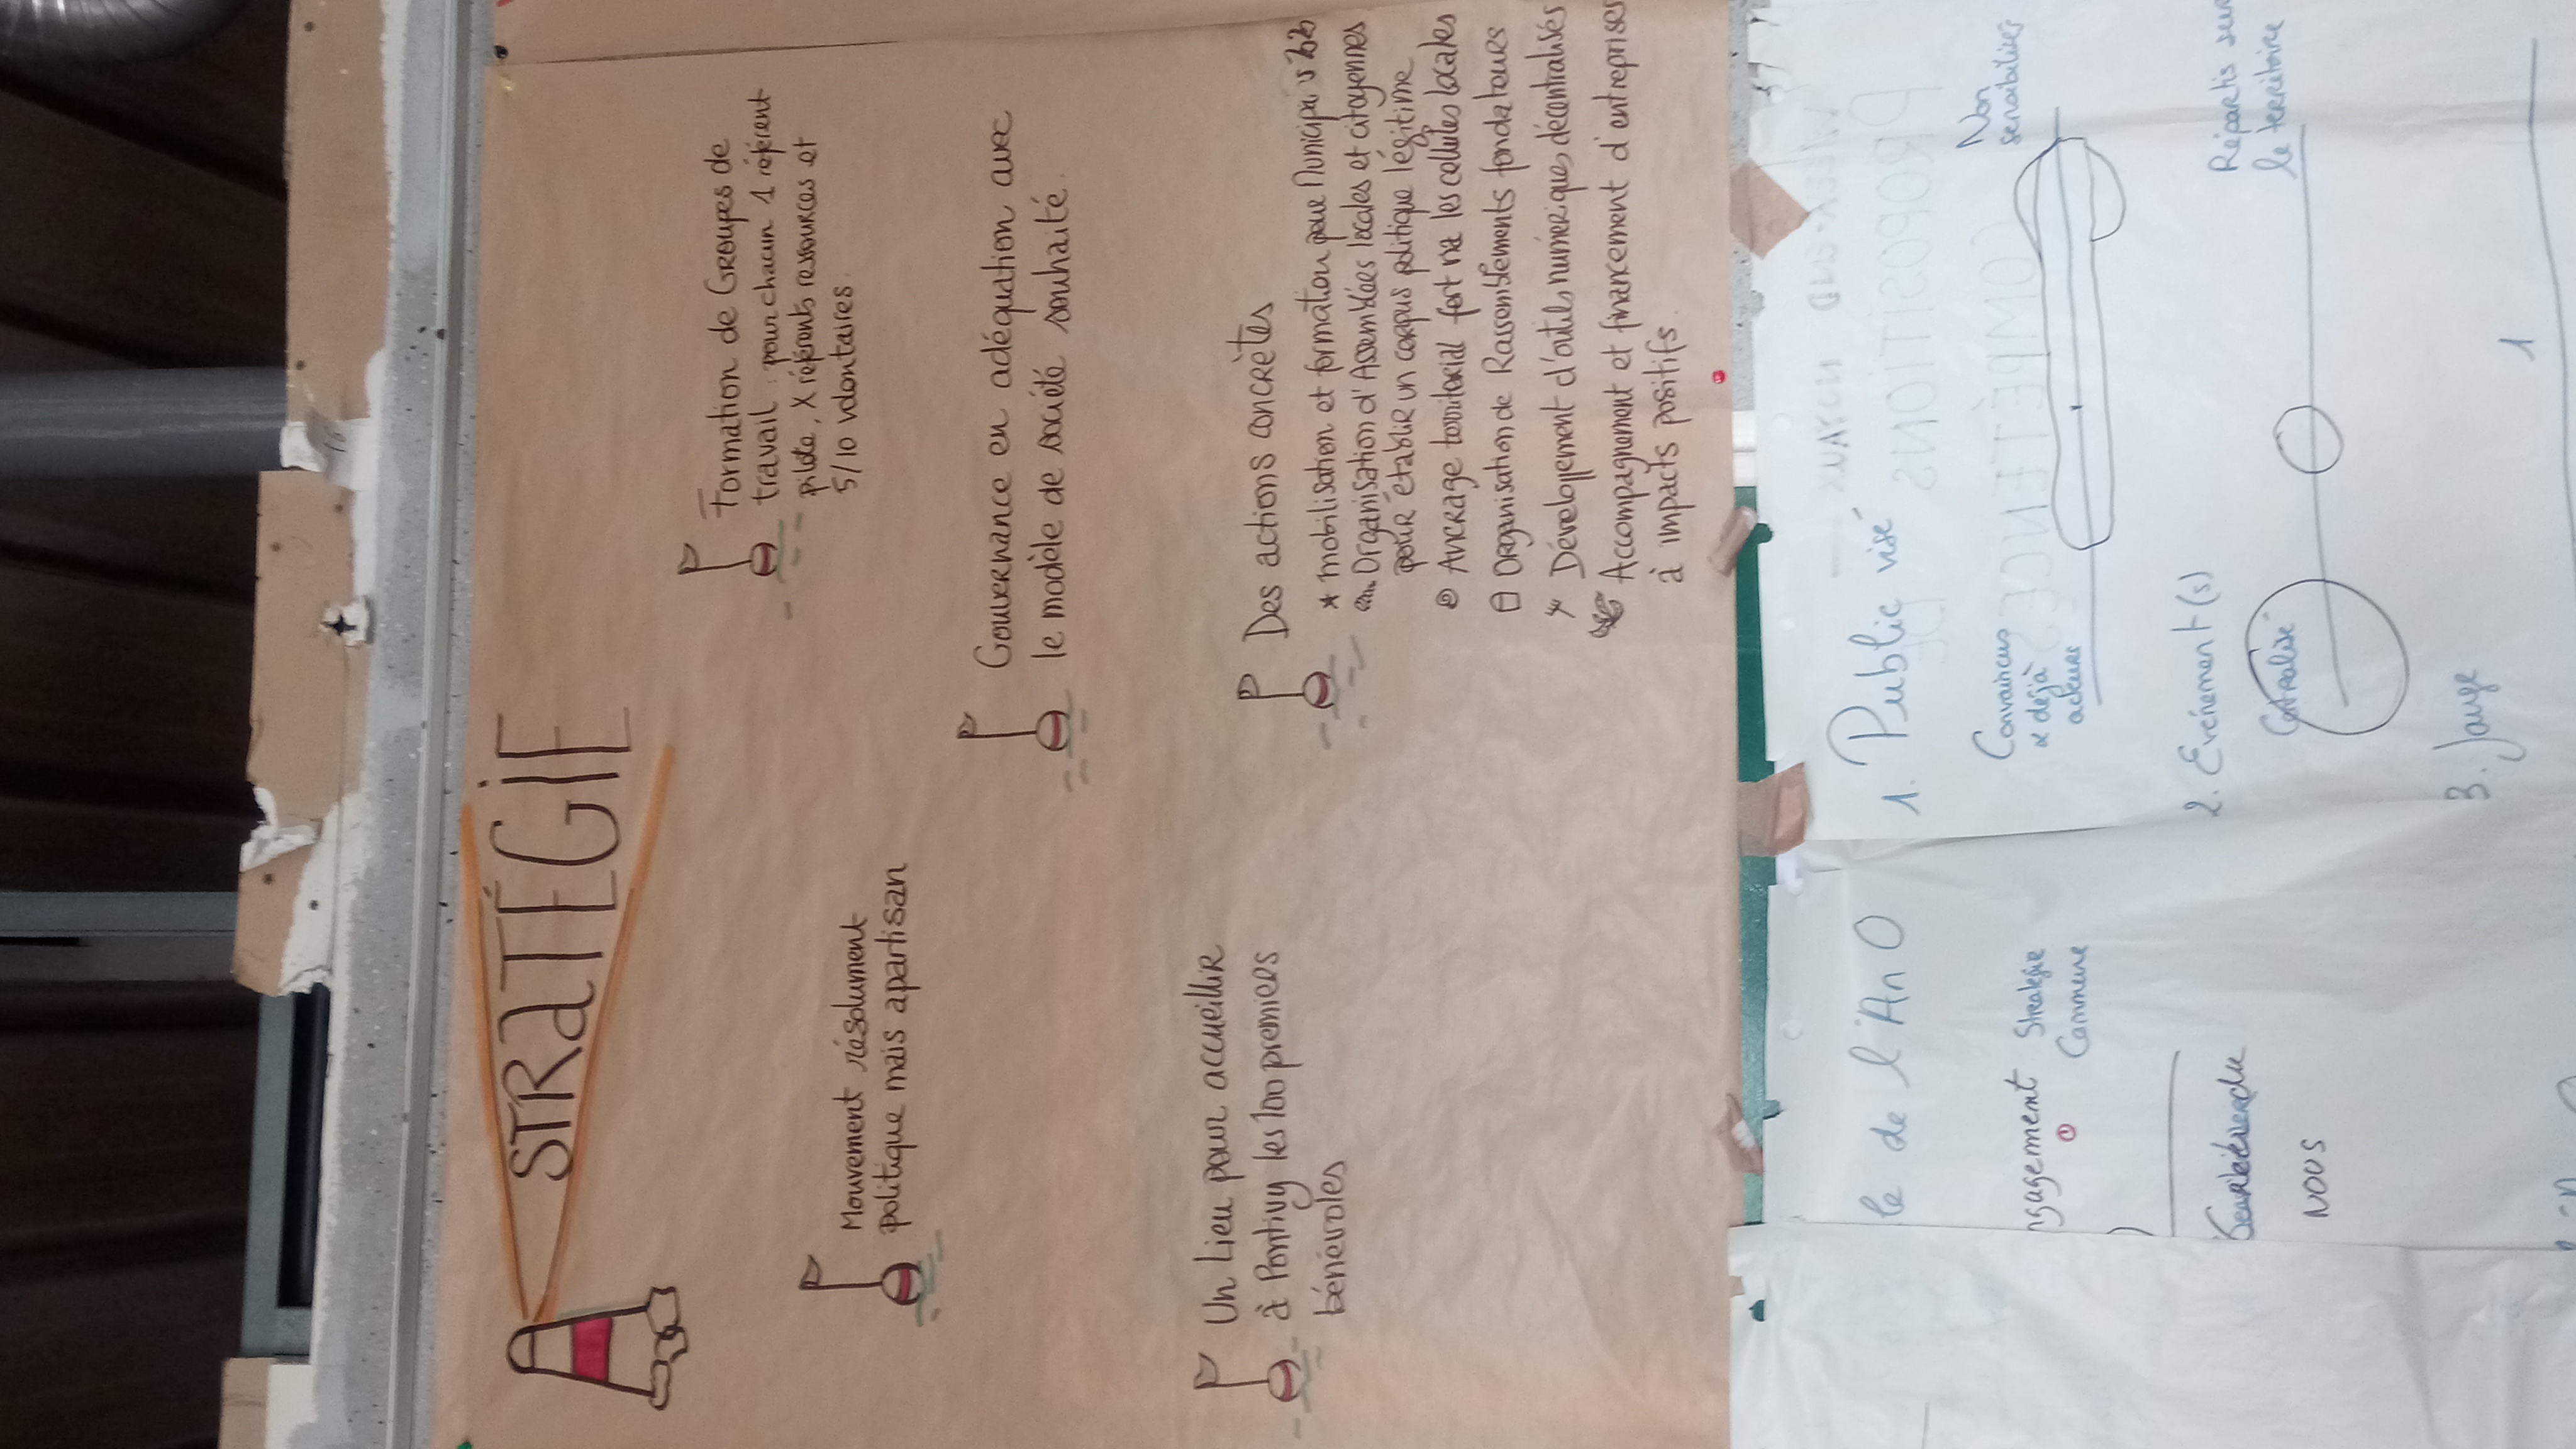 STRATÉGIE
Mouvement résolument
politique mais apartisan
Un Lieu pour accueillir
à Pontivy les 100 premiers
bénévoles
Formation de Groupes de
travail : pour chacun 1 référent
pilote, X référents ressources et
5/10 volontaires.
Gouvernance en adéquation avec
le modèle de société souhaité.
Des actions concrètes
★ mobilisation et formation pour Municipai
Organisation d'Assemblées locales et citoyennes
pour établir un corpus politique légitime
Ancrage territorial fort via les cellules locales
Organisation de Rassemblements fondateurs
Développement d'outils numériques décentralisés
Accompagnement et financement d'entreprises
à impacts positifs.
le de l'An 0
ngagement
Stratégie
Commune
NOUS
1. Public visé
Convaincus
& déjà
acteurs
Non
sensibilisés
2. Evénement(s)
Centralisé
Répartis sur
le territoire
3. Jauge
1
PROPOSITIONS
DE
COMPÉTENCES